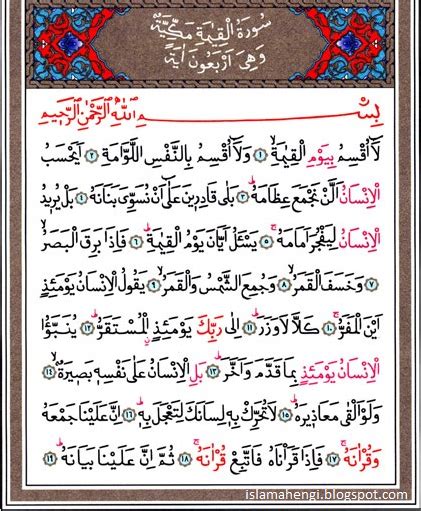 سُورَةُ الْقِيٰمَةِ مَكِّيَّةٌ
وَهِيَ اَرْبَعُونَ اٰيَةً
بِسْمِ اللّٰهِ الرَّحْمٰنِ الرَّحِيمِ
لَٓا اُقْسِمُ بِيَوْمِ الْقِيٰمَةِۙ ﴿١﴾ وَلَٓا اُقْسِمُ بِالنَّفْسِ اللَّوَّامَةِ ﴿٢﴾ اَيَحْسَبُ
الْاِنْسَانُ اَلَّنْ نَجْمَعَ عِظَامَهُۜ ﴿٣﴾ بَلٰى قَادِرِينَ عَلٰٓى اَنْ نُسَوِّيَ بَنَانَهُ ﴿٤﴾ بَلْ يُرِيدُ
الْاِنْسَانُ لِيَفْجُرَ اَمَامَهُۚ ﴿٥﴾ يَسْـَٔلُ اَيَّانَ يَوْمُ الْقِيٰمَةِۜ ﴿٦﴾ فَاِذَا بَرِقَ الْبَصَرُۙ
﴿٧﴾ وَخَسَفَ الْقَمَرُۙ ﴿٨﴾ وَجُمِعَ الشَّمْسُ وَالْقَمَرُۙ ﴿٩﴾ يَقُولُ الْاِنْسَانُ يَوْمَئِذٍ
اَيْنَ الْمَفَرُّۚ ﴿١٠﴾ كَلَّا لَا وَزَرَۜ ﴿١١﴾ اِلٰى رَبِّكَ يَوْمَئِذٍ الْمُسْتَقَرُّۜ ﴿١٢﴾ يُنَبَّؤُا
الْاِنْسَانُ يَوْمَئِذٍ بِمَا قَدَّمَ وَاَخَّرَۜ ﴿١٣﴾ بَلِ الْاِنْسَانُ عَلٰى نَفْسِهٖ بَصِيرَةٌۙ ﴿١٤﴾
وَلَوْ اَلْقٰى مَعَاذِيرَهُۜ ﴿١٥﴾ لَا تُحَرِّكْ بِهٖ لِسَانَكَ لِتَعْجَلَ بِهٖۜ ﴿١٦﴾ اِنَّ عَلَيْنَا جَمْعَهُ
وَقُرْاٰنَهُۚ ﴿١٧﴾ فَاِذَا قَرَأْنَاهُ فَاتَّبِعْ قُرْاٰنَهُۚ ﴿١٨﴾ ثُمَّ اِنَّ عَلَيْنَا بَيَانَهُۜ ﴿١٩﴾
islamahengi.blogspot.com